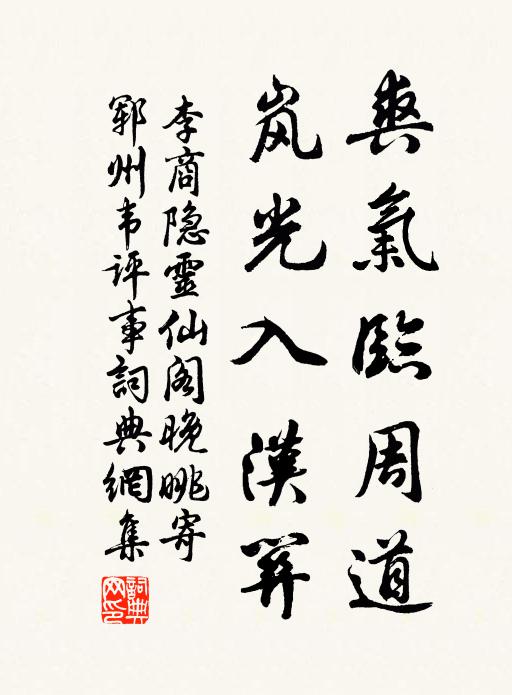 爽氣臨周道
岚光入漢關
李商隐靈仙阁晚眺寄
郓州韦评事詞典網集
詞典